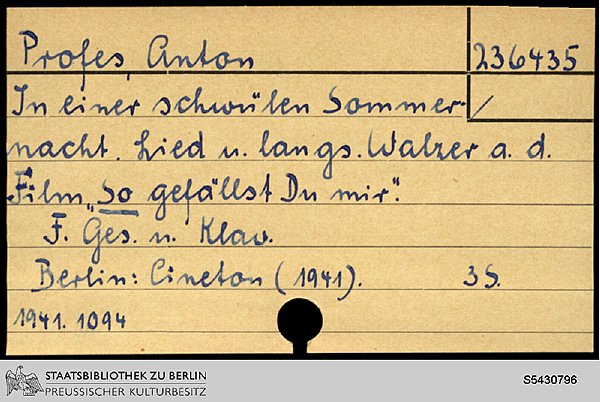 Profes, Anton 236435
In einer schwülen Sommer- /
nacht. Lied u. langs. Walzer a. d.
Film „So gefällst Du mir“.
F. Ges. u. Klav.
Berlin: Cineton (1941). 3 S.
1941. 1094
STAATSBIBLIOTHEK ZU BERLIN
PREUSSISCHER KULTURBESITZ
S5430796